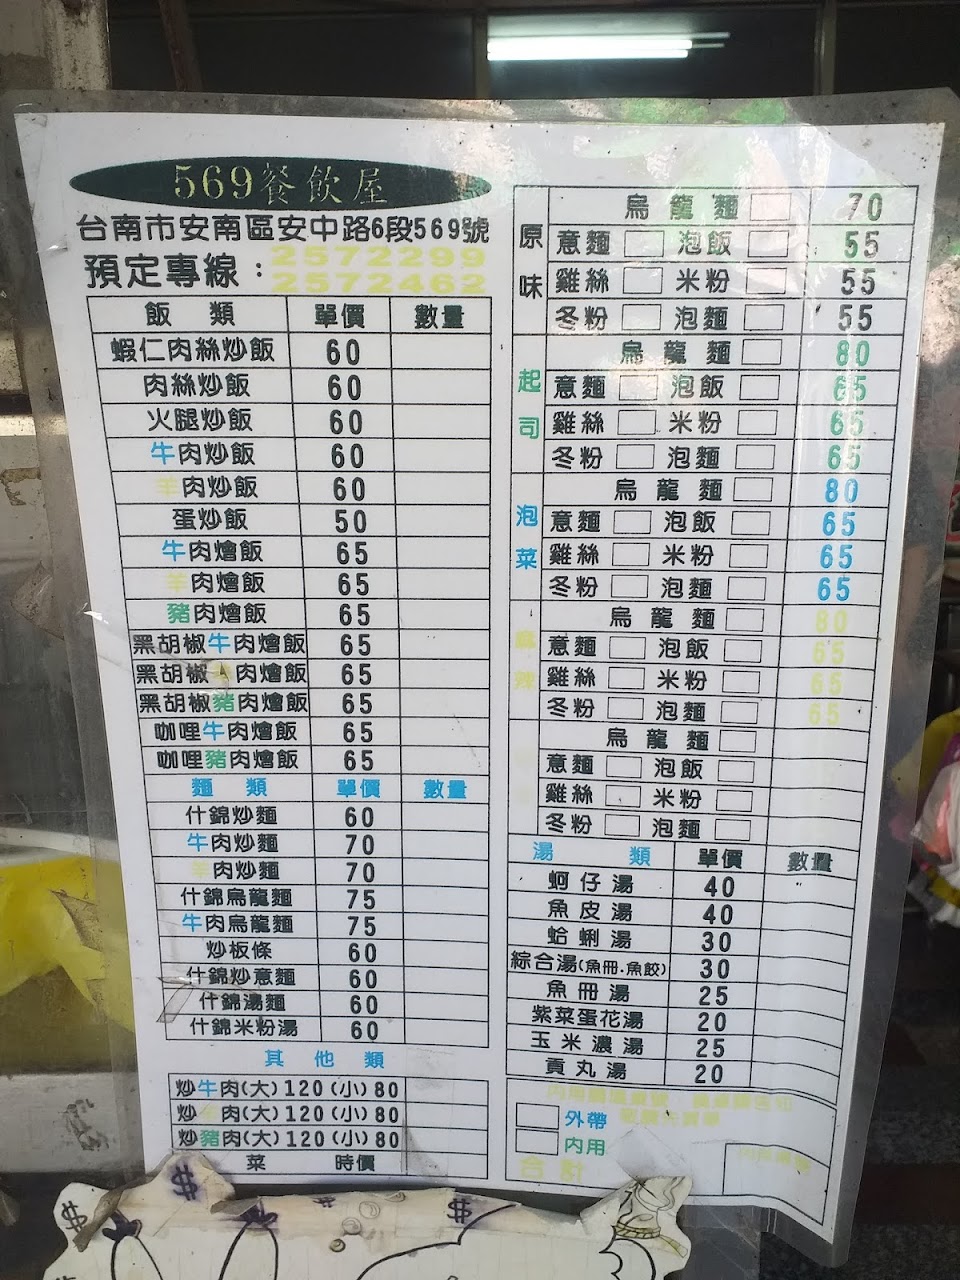 569餐飲屋
台南市安南區安中路6段569號
預定專線：2572299
2572462
飯類 單價 數量
蝦仁肉絲炒飯 60
肉絲炒飯 60
火腿炒飯 60
牛肉炒飯 60
羊肉炒飯 60
蛋炒飯 50
牛肉燴飯 65
羊肉燴飯 65
豬肉燴飯 65
黑胡椒牛肉燴飯 65
黑胡椒 肉燴飯 65
黑胡椒豬肉燴飯 65
咖哩牛肉燴飯 65
咖哩豬肉燴飯 65
麵類 單價 數量
什錦炒麵 60
牛肉炒麵 70
羊肉炒麵 70
什錦烏龍麵 75
牛肉烏龍麵 75
炒板條 60
什錦炒意麵 60
什錦湯麵 60
什錦米粉湯 60
其他類
炒牛肉(大)120(小)80
炒羊肉(大)120(小)80
炒豬肉(大)120(小)80
菜 時價
原味
烏龍麵 70
意麵 泡飯 55
雞絲 米粉 55
冬粉 泡麵 55
起司
烏龍麵 80
意麵 泡飯 65
雞絲 米粉 65
冬粉 泡麵 65
泡菜
烏龍麵 80
意麵 泡飯 65
雞絲 米粉 65
冬粉 泡麵 65
麻辣
烏龍麵 80
意麵 泡飯 65
雞絲 米粉 65
冬粉 泡麵 65
烏龍麵
意麵 泡飯
雞絲 米粉
冬粉 泡麵
湯類 單價 數量
蚵仔湯 40
魚皮湯 40
蛤蜊湯 30
綜合湯(魚冊.魚餃) 30
魚冊湯 25
紫菜蛋花湯 20
玉米濃湯 25
貢丸湯 20
外帶
內用
合計